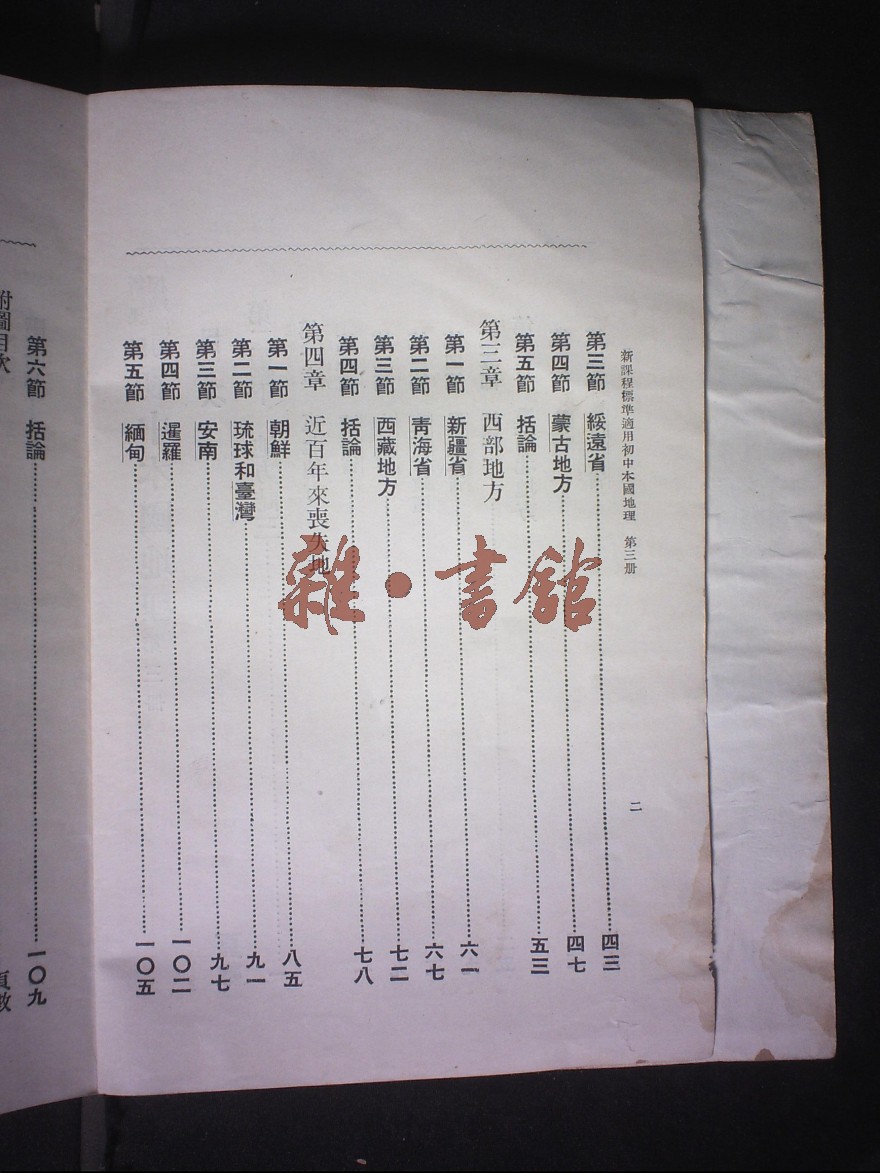 新課程標準適用初中本國地理 第三册
二
第三節 綏遠省 四三
第四節 蒙古地方 四七
第五節 括論 五三
第三章 西部地方
第一節 新疆省 六一
第二節 青海省 六七
第三節 西藏地方 七二
第四節 括論 七八
第四章 近百年來喪失地
第一節 朝鮮 八五
第二節 琉球和臺灣 九一
第三節 安南 九七
第四節 暹羅 一〇二
第五節 緬甸 一〇五
第六節 括論 一〇九
附圖目次 頁數
雜·書館